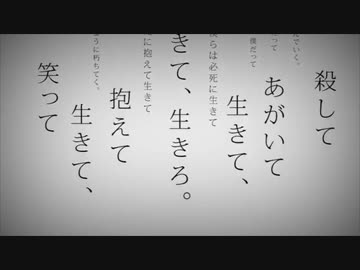 殺して
えていく。
あがいて
だって
生きて、
僕だって
きて、生きろ。
僕らは必死に生きて
抱えて
に抱えて生きて
生きて、
うに朽ちてく。
笑って